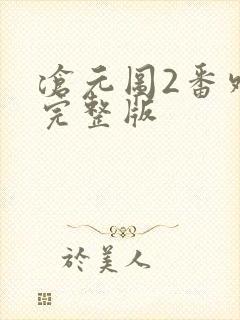 滄元圖2番外
完整版
於美人